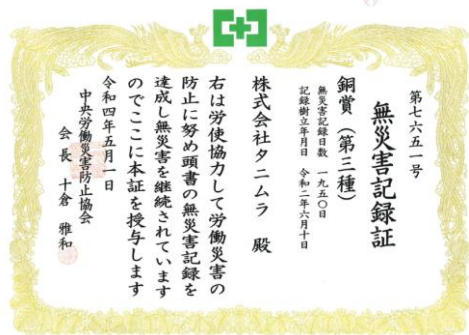 第七六五一号
無災害記録証
銅賞（第三種）
無災害記録日数　一九五〇日
記録樹立年月日　令和二年六月十日
株式会社タニムラ　殿
右は労使協力して労働災害の
防止に努め頭書の無災害記録を
達成し無災害を継続されています
のでここに本証を授与します
令和四年五月一日
中央労働災害防止協会
会長　十倉　雅和